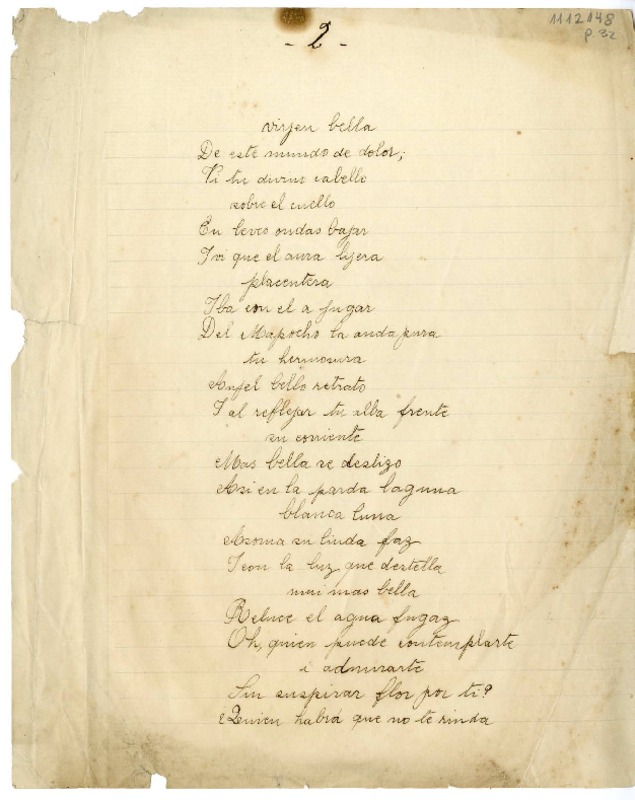 1112148
p. 32
- 2 -
virjen bella
De este mundo de dolor;
Vi tu durme cabello
sobre el cuello
En leves ondas bajar
I vi que el aura lijera
placentera
Iba con el a jugar
Del Mapocho la onda pura
tu hermosura
Anjel bello retrato
I al reflejar tu alba frente
su corriente
Mas bella se deslizo
Asi en la parda laguna
blanca luna
Asoma su linda faz
I con la luz que destella
mui mas bella
Reluce el agua fugaz
Oh, quien puede contemplarte
i admirarte
Sin suspirar flor por ti?
¿Quien habrá que no te rinda